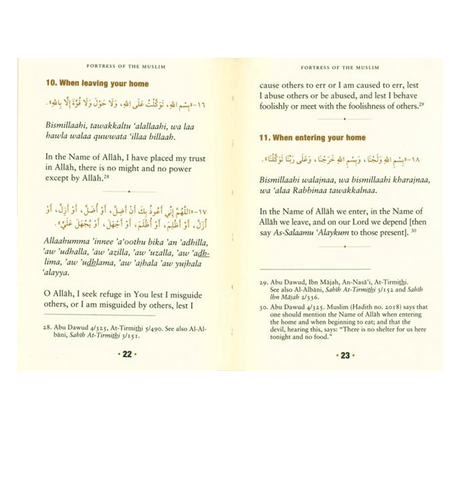 FORTRESS OF THE MUSLIM
10. When leaving your home
١٦-«بِسْمِ اللهِ، تَوَكَّلْتُ عَلَى اللهِ، وَلَا حَوْلَ وَلَا قُوَّةَ إِلَّا بِاللهِ».
Bismillaahi, tawakkaltu 'alallaahi, wa laa
hawla walaa quwwata 'illaa billaah.
In the Name of Allāh, I have placed my trust
in Allāh, there is no might and no power
except by Allāh.²⁸
١٧-«اللَّهُمَّ إِنِّي أَعُوذُ بِكَ أَنْ أَضِلَّ، أَوْ أُضَلَّ، أَوْ أَزِلَّ، أَوْ
أُزَلَّ، أَوْ أَظْلِمَ، أَوْ أُظْلَمَ، أَوْ أَجْهَلَ، أَوْ يُجْهَلَ عَلَيَّ».
Allaahumma 'innee 'a'oothu bika 'an 'adhilla,
'aw 'udhalla, 'aw 'azilla, 'aw 'uzalla, 'aw 'adh-
lima, 'aw 'udhlama, 'aw 'ajhala 'aw yujhala
'alayya.
O Allāh, I seek refuge in You lest I misguide
others, or I am misguided by others, lest I
28. Abu Dawud 4/325, At-Tirmithi 5/490. See also Al-Al-
bāni, Sahih At-Tirmithi 3/151.
• 22 •
FORTRESS OF THE MUSLIM
cause others to err or I am caused to err, lest
I abuse others or be abused, and lest I behave
foolishly or meet with the foolishness of others.²⁹
11. When entering your home
١٨-«بِسْمِ اللهِ وَلَجْنَا، وَبِسْمِ اللهِ خَرَجْنَا، وَعَلَى رَبِّنَا تَوَكَّلْنَا».
Bismillaahi walajnaa, wa bismillaahi kharajnaa,
wa 'alaa Rabbinaa tawakkalnaa.
In the Name of Allāh we enter, in the Name of
Allāh we leave, and on our Lord we depend [then
say As-Salaamu 'Alaykum to those present]. ³⁰
29. Abu Dawud, Ibn Mājah, An-Nasā'i, At-Tirmithi.
See also Al-Albāni, Sahih At-Tirmithi 3/152 and Sahih
Ibn Mājah 2/336.
30. Abu Dawud 4/325. Muslim (Hadith no. 2018) says that
one should mention the Name of Allāh when entering
the home and when beginning to eat; and that the
devil, hearing this, says: "There is no shelter for us here
tonight and no food."
• 23 •